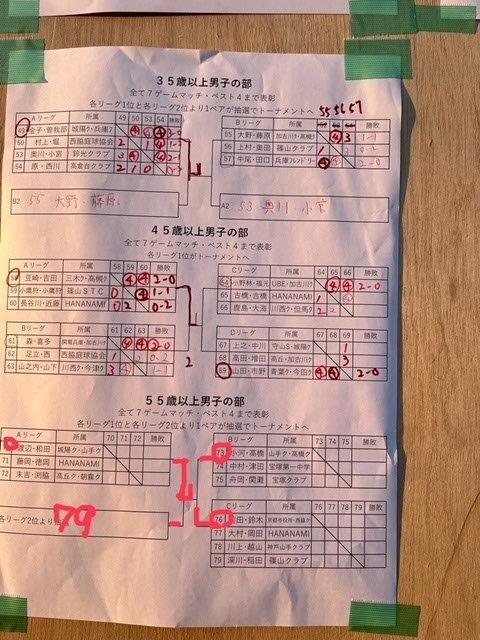 35歳以上男子の部
全て7ゲームマッチ・ベスト4まで表彰
各リーグ1位と各リーグ2位より1ペアが抽選でトーナメントへ
Aリーグ 所属 49 50 53 54 勝敗
49 金子・曽我部 城陽ク・兵庫ク ④ ④ ④
50 村上・堀 西脇庭球協会 2 1 ④
53 奥川・小宮 鈴光クラブ 3 ④ ④ 2-1
54 原・西川 高倉台クラブ 2 1 0
Bリーグ 所属 55 56 57 勝敗
55 大野・藤原 加古川ク・高槻ク ④ 3 1-1
56 上村・奥田 篠山クラブ 0-2
57 牛尾・田口 兵庫フレンドリー ④ 2-0
B2 55 大野・藤原
A2 53 奥川 小宮
45歳以上男子の部
全て7ゲームマッチ・ベスト4まで表彰
各リーグ1位がトーナメントへ
Aリーグ 所属 58 59 60 勝敗
58 豆崎・吉田 三木ク・高槻ク ④ ④ 2-0
59 小鷹狩・小鷹狩 篠山STC 0 ④ 1-1
60 長谷川・近藤 HANANAMI 0 2 0-2
Cリーグ 所属 64 65 66 勝敗
64 小野林・福元 UBE・加古川ク ④ ④ 2-0
65 古橋・古橋 HANANAMI 1 ④
66 鹿島・大海 川西ク・但馬ク 2 2
Bリーグ 所属 61 62 63 勝敗
61 森・喜多 関電兵庫・加古川ク ④ ④ 2-0
62 足立・西 西脇庭球協会 1 2 0-2
63 山之内・山下 川西ク・今津ク 3 ④ 1-1
2
Dリーグ 所属 67 68 69 勝敗
67 上之・中川 守山S・城陽ク 1
68 高田・増田 高丘・加古川ク 3
69 山田・市野 青葉ク・今田ク ④ ④ 2-0
55歳以上男子の部
全て7ゲームマッチ・ベスト4まで表彰
各リーグ1位と各リーグ2位より1ペアが抽選でトーナメントへ
Aリーグ 所属 70 71 72 勝敗
渡辺・和田 城陽ク・山手ク
71 藤岡・徳岡 HANANAMI
72 末吉・渕脇 高丘ク・朝霧ク
Bリーグ 所属 73 74 75 勝敗
73 小河・高橋 山手ク・高槻ク
74 中村・津田 宝塚第一中学
75 舟岡・関灘 宝塚クラブ
各リーグ2位より抽選 79
Cリーグ 所属 76 77 78 79 勝敗
76 田・鈴木 京都市役所・西脇ク
77 大村・岡田 HANANAMI
78 川上・越山 神戸山手クラブ
79 深川・稲田 篠山クラブ